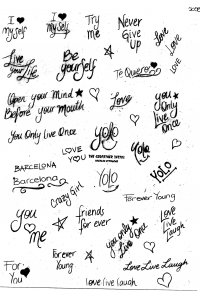 I ♥
Myself
I ♥
Myself
Try
me
Never
Give
up
Love
Love
Love
Live
your Life
Be
yourself
Te Quiero
Open your Mind
Before your Mouth
Love
you
Only
live
Once
You Only Live Once
Yolo
LOVE
YOU
Yolo
BARCELONA
Barcelona
Yolo
YOLO
Crazy Girl
Forever Young
you
♥ me
friends
for ever
you only
Live
One
Love
Live
Laugh
For
You
Forever
Young
Love Live Laugh
love live laugh